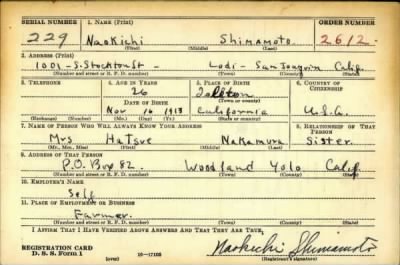 SERIAL NUMBER 1. NAME (Print) ORDER NUMBER
229 Naokichi Shimamoto 2612
(First) (Middle) (Last)
2. ADDRESS (Print)
1001 - S. Stockton St - Lodi - San Joaquin Calif.
(Number and street or R. F. D. number) (Town) (County) (State)
3. TELEPHONE 4. AGE IN YEARS 5. PLACE OF BIRTH 6. COUNTRY OF CITIZENSHIP
26
DATE OF BIRTH (Town or county)
Nov 16 1913 California U.S.A.
(Exchange) (Number) (Mo.) (Day) (Yr.) (State or country)
7. NAME OF PERSON WHO WILL ALWAYS KNOW YOUR ADDRESS 8. RELATIONSHIP OF THAT PERSON
Mrs Nakamura Sister.
(Mr., Mrs., Miss) (First) (Middle) (Last)
9. ADDRESS OF THAT PERSON
P.O. Box 82. Woodland Yolo Calif.
(Number and street or R. F. D. number) (Town) (County) (State)
10. EMPLOYER'S NAME
Self
11. PLACE OF EMPLOYMENT OR BUSINESS
Farmer.
(Number and street or R. F. D. number) (Town) (County) (State)
I AFFIRM THAT I HAVE VERIFIED ABOVE ANSWERS AND THAT THEY ARE TRUE.
REGISTRATION CARD Naokichi Shimamoto
D. S. S. Form 1 (over) (Registrant's signature)